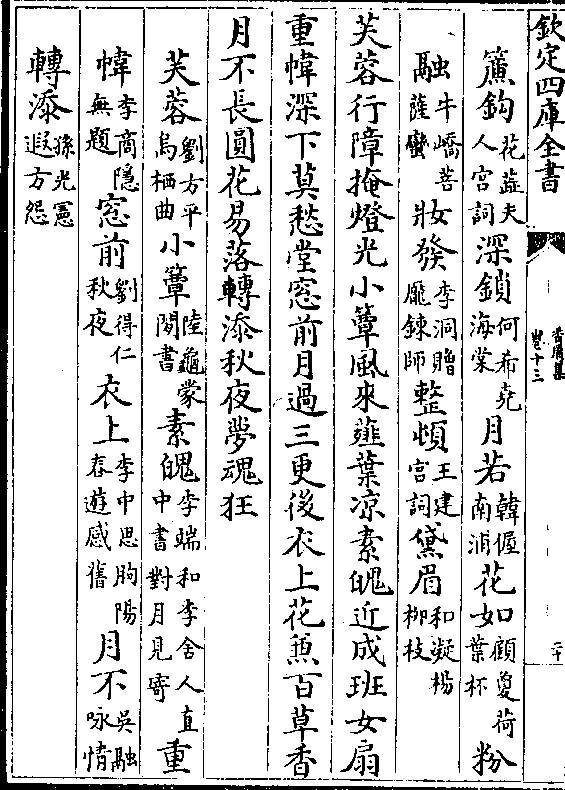 欽定四庫全書
香屑集 卷十三
二十
簾鉤花蕊夫人宮詞深鎖何希堯海棠月若韓偓南浦花如顧夐荷葉杯粉
融牛嶠菩薩蠻妝發李洞贈龐鍊師整頓王建宮詞黛眉和凝楊柳枝
芙蓉行障掩燈光小簟風來薤葉凉素魄近成班女扇
重幃深下莫愁堂窓前月過三更後衣上花兼百草香
月不長圓花易落轉添秋夜夢魂狂
芙蓉劉方平烏栖曲小簟陸龜蒙閒書素魄李端和李舍人直中書對月見寄重
幃李商隱無題窓前劉得仁秋夜衣上李中思朐陽春遊感舊月不吳融咏情
轉添孫光憲遐方怨